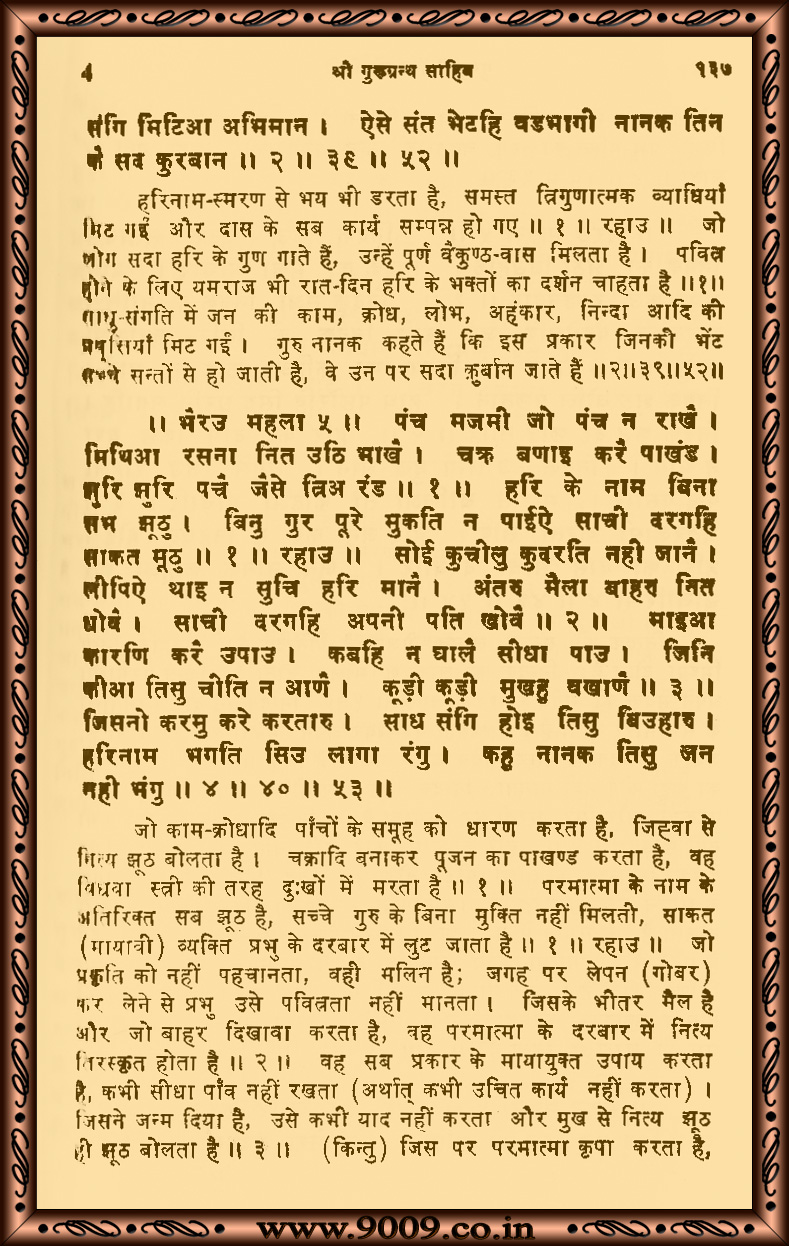 4 श्री गुरूग्रन्थ साहिब १३७
संगि मिटिआ अभिमान । ऐसे संत भेटहि वडभागी नानक तिन
कै सद कुरबान ॥ २ ॥ ३९ ॥ ५२ ॥
हरिनाम-स्मरण से भय भी डरता है, समस्त त्रिगुणात्मक व्याधियाँ
मिट गईं और दास के सब कार्य सम्पन्न हो गए ॥ १ ॥ रहाउ ॥ जो
लोग सदा हरि के गुण गाते हैं, उन्हें पूर्ण वैकुण्ठ-वास मिलता है । पवित्र
होने के लिए यमराज भी रात-दिन हरि के भक्तों का दर्शन चाहता है ॥१॥
साधु-संगति में जन की काम, क्रोध, लोभ, अहंकार, निन्दा आदि की
मिट गईं । गुरु नानक कहते हैं कि इस प्रकार जिनकी भेंट
सच्चे सन्तों से हो जाती है, वे उन पर सदा क़ुर्बान जाते हैं ॥२॥३९॥५२॥
॥ भैरउ महला ५ ॥ पंच मजमी जो पंच न राखै ।
मिथिआ रसना नित उठि भाखै । चक्र बणाइ करै पाखंड ।
झुरि झुरि पचै जैसे त्रिअ रंड ॥ १ ॥ हरि के नाम बिना
सभ झूठु । बिनु गुर पूरे मुकति न पाईऐ साची दरगहि
साकत मूठु ॥ १ ॥ रहाउ ॥ सोई कुचीलु कुदरति नही जानै ।
लीपिऐ थाइ न सुचि हरि मानै । अंतरु मैला बाहरु नित
धोवै । साची दरगहि अपनी पति खोवै ॥ २ ॥ माइआ
कारणि करै उपाउ । कबहि न घालै सीधा पाउ । जिनि
कीआ तिसु चीति न आणै । कूड़ी कूड़ी मुखहु वखाणै ॥ ३ ॥
जिसनो करमु करे करतारु । साध संगि होइ तिसु बिउहारु ।
हरिनाम भगति सिउ लागा रंगु । कहु नानक तिसु जन
नही भंगु ॥ ४ ॥ ४० ॥ ५३ ॥
जो काम-क्रोधादि पाँचों के समूह को धारण करता है, जिह्वा से
नित्य झूठ बोलता है । चक्रादि बनाकर पूजन का पाखण्ड करता है, वह
विधवा स्त्री की तरह दुःखों में मरता है ॥ १ ॥ परमात्मा के नाम के
अतिरिक्त सब झूठ है, सच्चे गुरु के बिना मुक्ति नहीं मिलती, साकत
(मायावी) व्यक्ति प्रभु के दरबार में लुट जाता है ॥ १ ॥ रहाउ ॥ जो
प्रकृति को नहीं पहचानता, वही मलिन है; जगह पर लेपन (गोबर)
कर लेने से प्रभु उसे पवित्रता नहीं मानता । जिसके भीतर मैल है
और जो बाहर दिखावा करता है, वह परमात्मा के दरबार में नित्य
तिरस्कृत होता है ॥ २ ॥ वह सब प्रकार के मायायुक्त उपाय करता
है, कभी सीधा पाँव नहीं रखता (अर्थात् कभी उचित कार्य नहीं करता) ।
जिसने जन्म दिया है, उसे कभी याद नहीं करता और मुख से नित्य झूठ
ही झूठ बोलता है ॥ ३ ॥ (किन्तु) जिस पर परमात्मा कृपा करता है,
www.9009.co.in